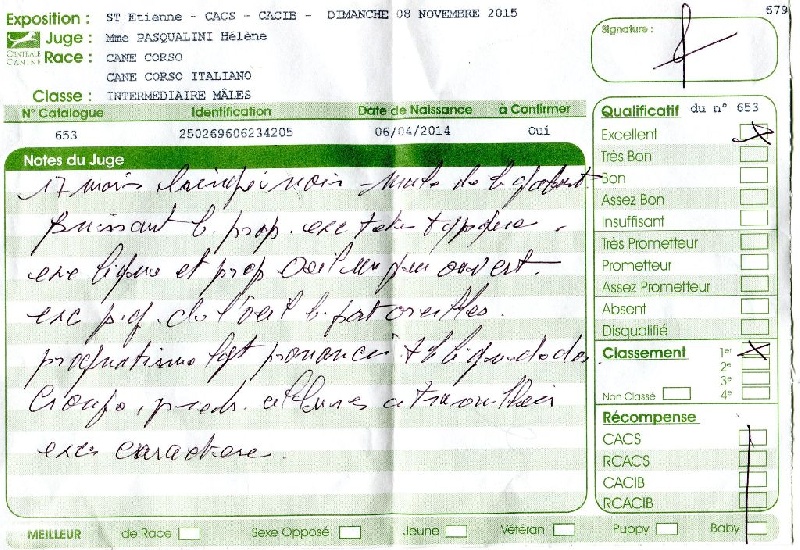 Exposition : ST Etienne - CACS - CACIB - DIMANCHE 08 NOVEMBRE 2015
579
CENTRALE CANINE
Juge : Mme PASQUALINI Hélène
Race : CANE CORSO
CANE CORSO ITALIANO
Classe : INTERMEDIAIRE MALES
Signature :
N° Catalogue Identification Date de Naissance à Confirmer
653 250269606234205 06/04/2014 Oui
Notes du Juge
17 mois noir de
puissant b prop. exc tete
exc ligne et prop oeil un peu ouvert.
exc pig. de l'oeil b port oreilles.
prognatisme prononcé tb dos
Croupe, allures
exc caractère
Qualificatif du n° 653
Excellent X
Très Bon
Bon
Assez Bon
Insuffisant
Très Prometteur
Prometteur
Assez Prometteur
Absent
Disqualifié
Classement 1er X
2e
3e
Non Classé 4e
Récompense
CACS
RCACS
CACIB
RCACIB
MEILLEUR de Race Sexe Opposé Jeune Vétéran Puppy Baby